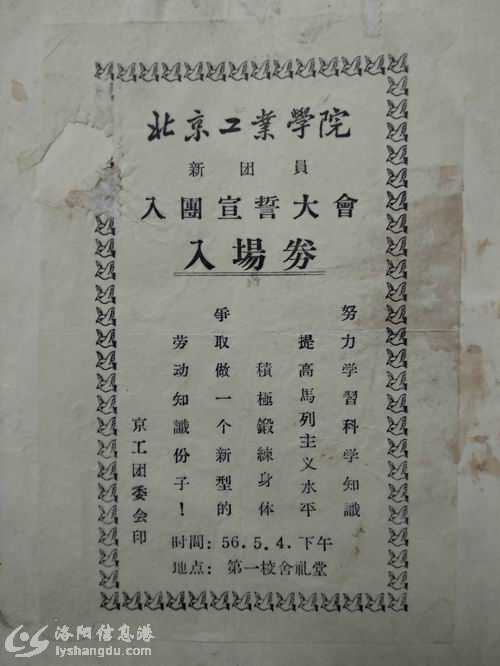 北京工業學院
新团員
入團宣誓大會
入場券
努力学習科学知識
提高馬列主义水平
積極鍛練身体
爭取做一个新型的
劳动知識份子!
京工团委会印
时間: 56.5.4.下午
地点: 第一校舍礼堂
洛阳信息港
lyshangdu.com